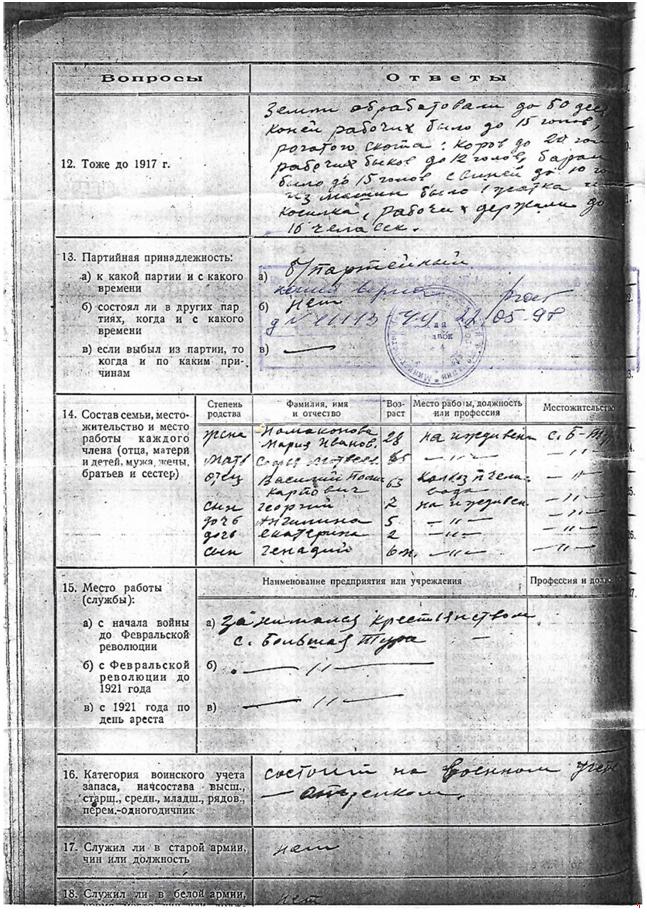 Вопросы
Ответы
12. Тоже до 1917 г.
Земли обрабатовали до 50 дес
коней рабочих было до 15 голов,
рогатого скота: коров до 20 гол
рабочих быков до 12 голов, баран
было до 15 голов свиней до 10 го
из машин было 1 жатка
косилка, рабочих держали до
16 человек.
13. Партийная принадлежность:
а) к какой партии и с какого
времени
а) б/партейный
б) состоял ли в других пар
тиях, когда и с какого
времени
б) нет
копия верна
22.05.98
в) если выбыл из партии, то
когда и по каким при-
чинам
в) —
14. Состав семьи, место-
жительство и место
работы каждого
члена (отца, матери
и детей, мужа, жены,
братьев и сестер)
Степень родства
Фамилия, имя и отчество
Воз-раст
Место работы, должность или профессия
Местожительство
жена Номоконова Мария Иванов. 28 на иждивен с. Б-Тур
мать
отец Василий Карпович 63 Колхоз
сын Георгий 7 на иждивен —"—
дочь Ангилина 5 —"— —"—
дочь Екатерина 2 —"— —"—
сын Генадий 6 м. —"— —"—
15. Место работы
(службы):
Наименование предприятия или учреждения
Профессия и долж
а) с начала войны
до Февральской
революции
а) Занимался крестьянством
с. Большая Тура —
б) с Февральской
революции до
1921 года
б) —"—
в) с 1921 года по
день ареста
в) —"—
16. Категория воинского учета
запаса, начсостава высш.,
старш., средн., младш., рядов.,
перем.-одногодичник
состоит на военном учете
17. Служил ли в старой армии,
чин или должность
нет
18. Служил ли в белой армии,
нет